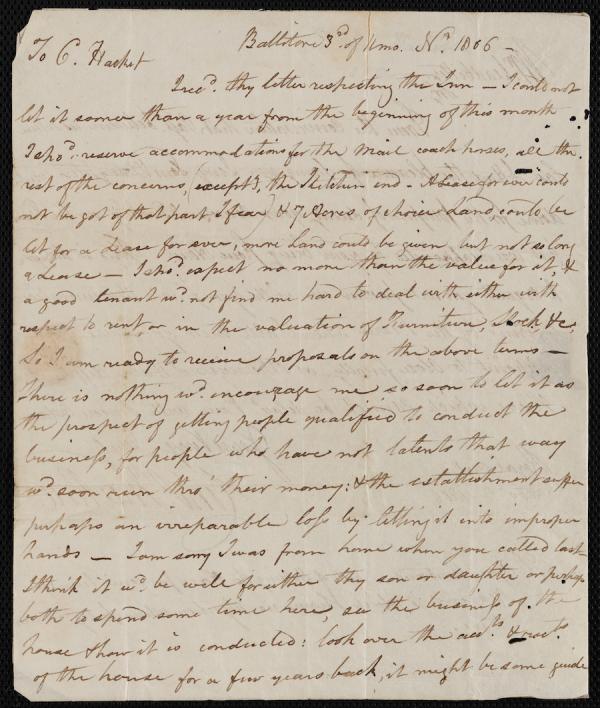 Ballitore 3d. of 11mo. Nr. 1806 -
To C. Hacket
I recd. thy letter respecting the Inn - I could not
let it sooner than a year from the beginning of this month
I shod. reserve accommodations for the mail coach horses, all the
rest of the concerns, (except the Kitchen end - A Lease for ever could
not be got of that part I fear) & 7 Acres of choice Land, could be
let for a Lease for ever, more Land could be given, but not so long
a Lease - I shod. expect no more than the value for it, &
a good tenant wd. not find me hard to deal with either with
respect to rent, or in the valuation of Furniture, Stock, &c.
So I am ready to receive proposals on the above terms -
There is nothing wd. encourage me so soon to let it as
the prospect of getting people qualified to conduct the
business, for people who have not talents that way
wd. soon run thro' their money: & the establishment suffer
perhaps an irreparable loss by letting it into improper
hands - I am sorry I was from home when you called last
I think it wd. be well for either thy son or daughter or perhaps
both to spend some time here, see the business of the
house & how it is conducted: look over the accts. &
of the house for a few years back, it might be some guide